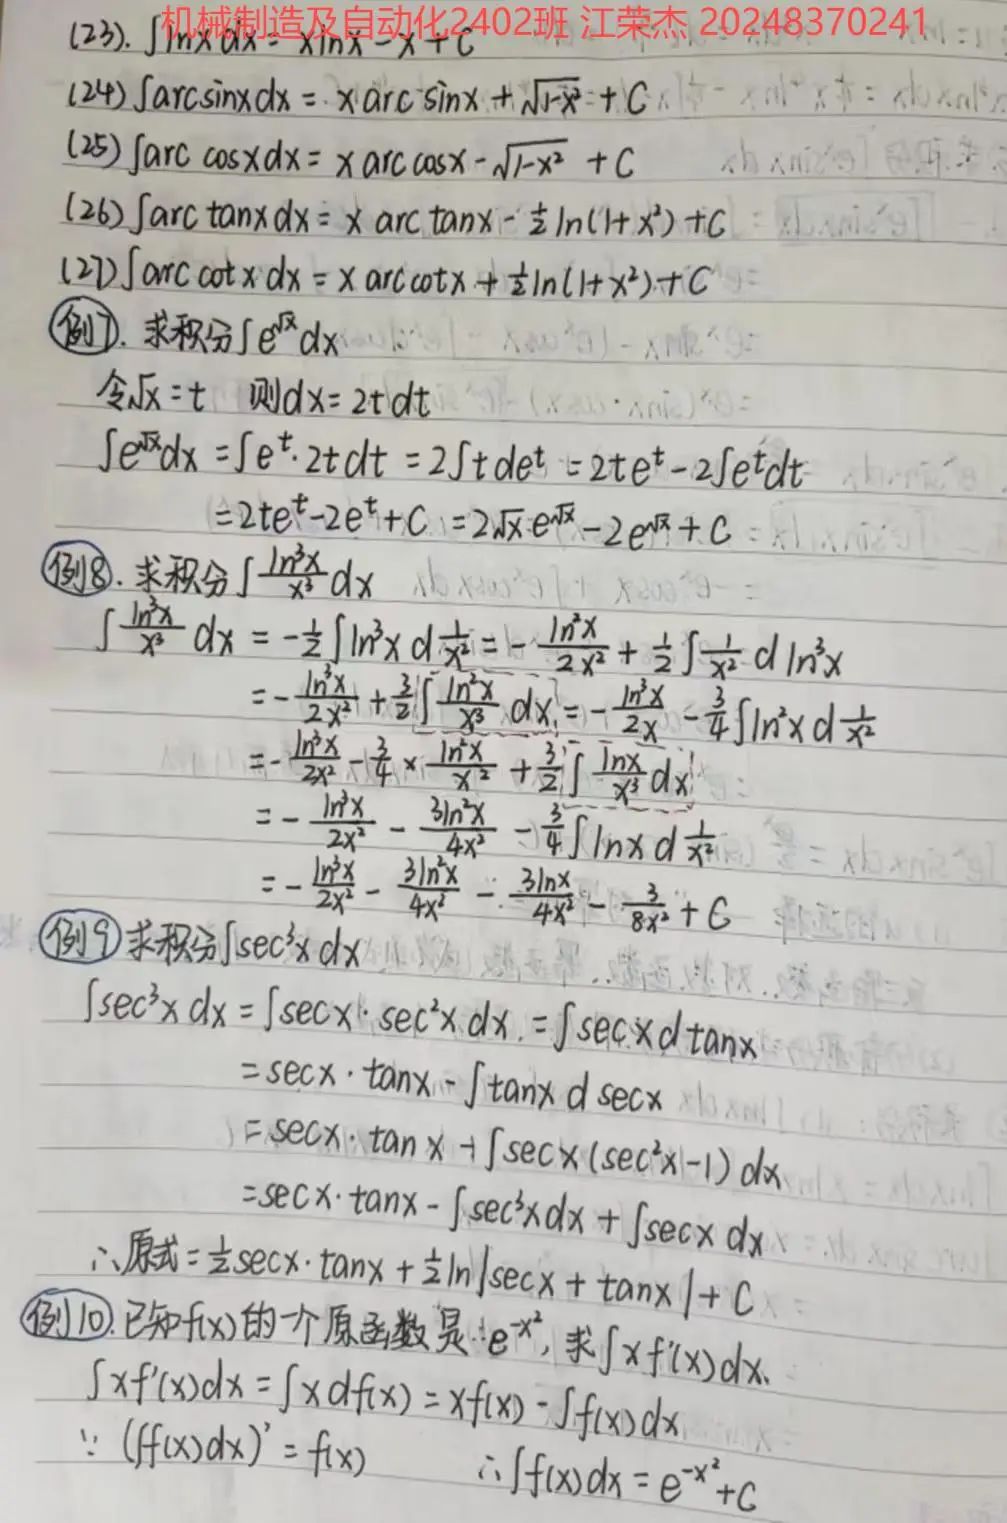 机械制造及自动化2402班 江荣杰 20248370241
(23). ∫lnxdx = xlnx - x + C
(24) ∫arcsinxdx = x arcsinx + √1-x² + C
(25) ∫arc cosxdx = x arccosx - √1-x² + C
(26) ∫arc tanxdx = x arc tanx - ½ ln(1+x²) + C
(27) ∫arc cotxdx = x arccotx + ½ ln(1+x²) + C
例7. 求积分∫e^√x dx
令√x = t 则dx = 2tdt
∫e^√x dx = ∫e^t·2tdt = 2∫tde^t = 2te^t - 2∫e^tdt
= 2te^t - 2e^t + C = 2√x e^√x - 2e^√x + C
例8. 求积分∫ln³x/x³ dx
∫ln³x/x³ dx = -½∫ln³x d 1/x² = - ln³x/2x² + ½∫1/x² d ln³x
= - ln³x/2x² + 3/2 ∫ln²x/x³ dx = - ln³x/2x - ¾∫ln²x d 1/x²
= - ln³x/2x² - ¾ × ln²x/x² + 3/2 ∫lnx/x³ dx
= - ln³x/2x² - 3ln²x/4x² - ¾∫lnx d 1/x²
= - ln³x/2x² - 3ln²x/4x² - 3lnx/4x² - 3/8x² + C
例9 求积分∫sec³x dx
∫sec³x dx = ∫secx·sec²x dx = ∫secx d tanx
= secx·tanx - ∫tanx d secx
= secx·tanx - ∫secx(sec²x-1)dx
= secx·tanx - ∫sec³xdx + ∫secx dx
∴原式 = ½secx·tanx + ½ln|secx + tanx| + C
例10. 已知f(x)的一个原函数是e^-x², 求∫xf'(x)dx.
∫xf'(x)dx = ∫xdf(x) = xf(x) - ∫f(x)dx
∵ (∫f(x)dx)' = f(x) ∴∫f(x)dx = e^-x² + C